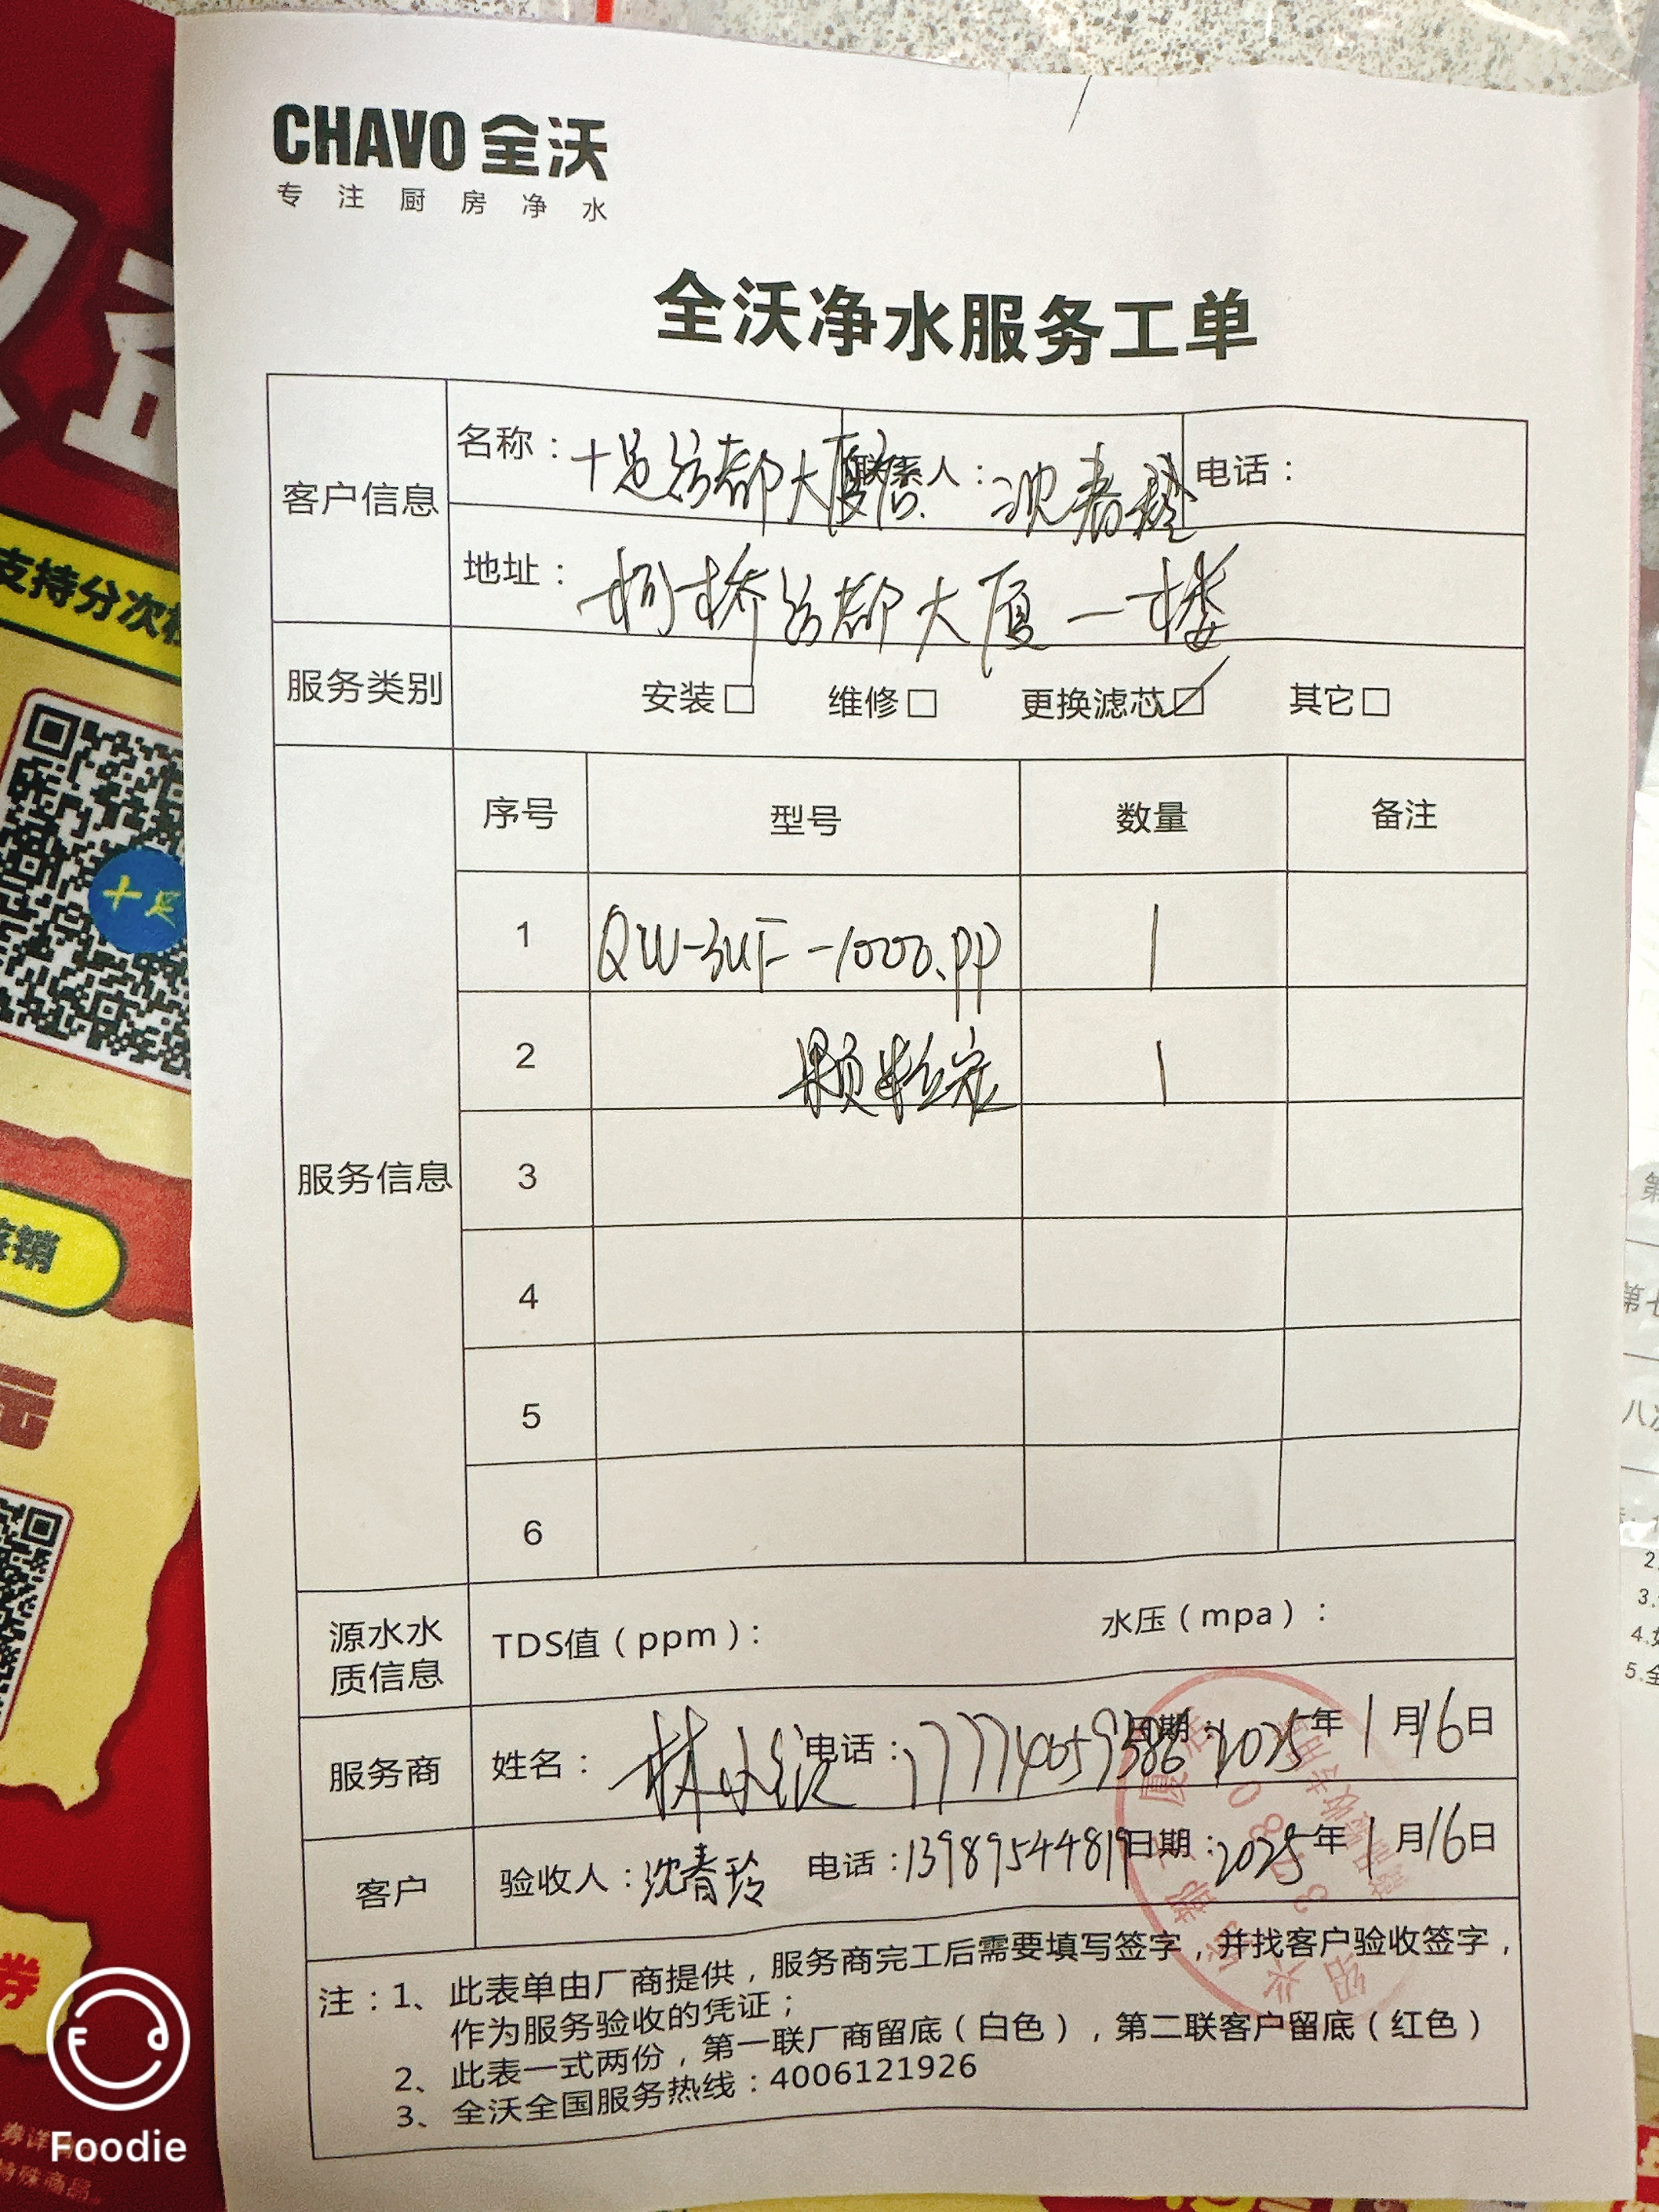 CHAVO 全沃
专注厨房净水
全沃净水服务工单
客户信息
名称：十足纺都大厦店 联系人：沈春玲 电话：
地址：柯桥纺都大厦一楼
服务类别 安装□ 维修□ 更换滤芯☑ 其它□
服务信息
序号 型号 数量 备注
1 QW-3UF-1000.PP 1
2 颗粒炭 1
3
4
5
6
源水水质信息 TDS值（ppm）： 水压（mpa）：
服务商 姓名：林 电话：17774059386 日期：2025年1月16日
客户 验收人：沈春玲 电话：13989544819 日期：2025年1月16日
注：1、此表单由厂商提供，服务商完工后需要填写签字，并找客户验收签字，
作为服务验收的凭证；
2、此表一式两份，第一联厂商留底（白色），第二联客户留底（红色）
3、全沃全国服务热线：4006121926
支持分次
十足
销
元
券
特殊商品。
Foodie
第
第七
八
2.
3.
4.
5.全